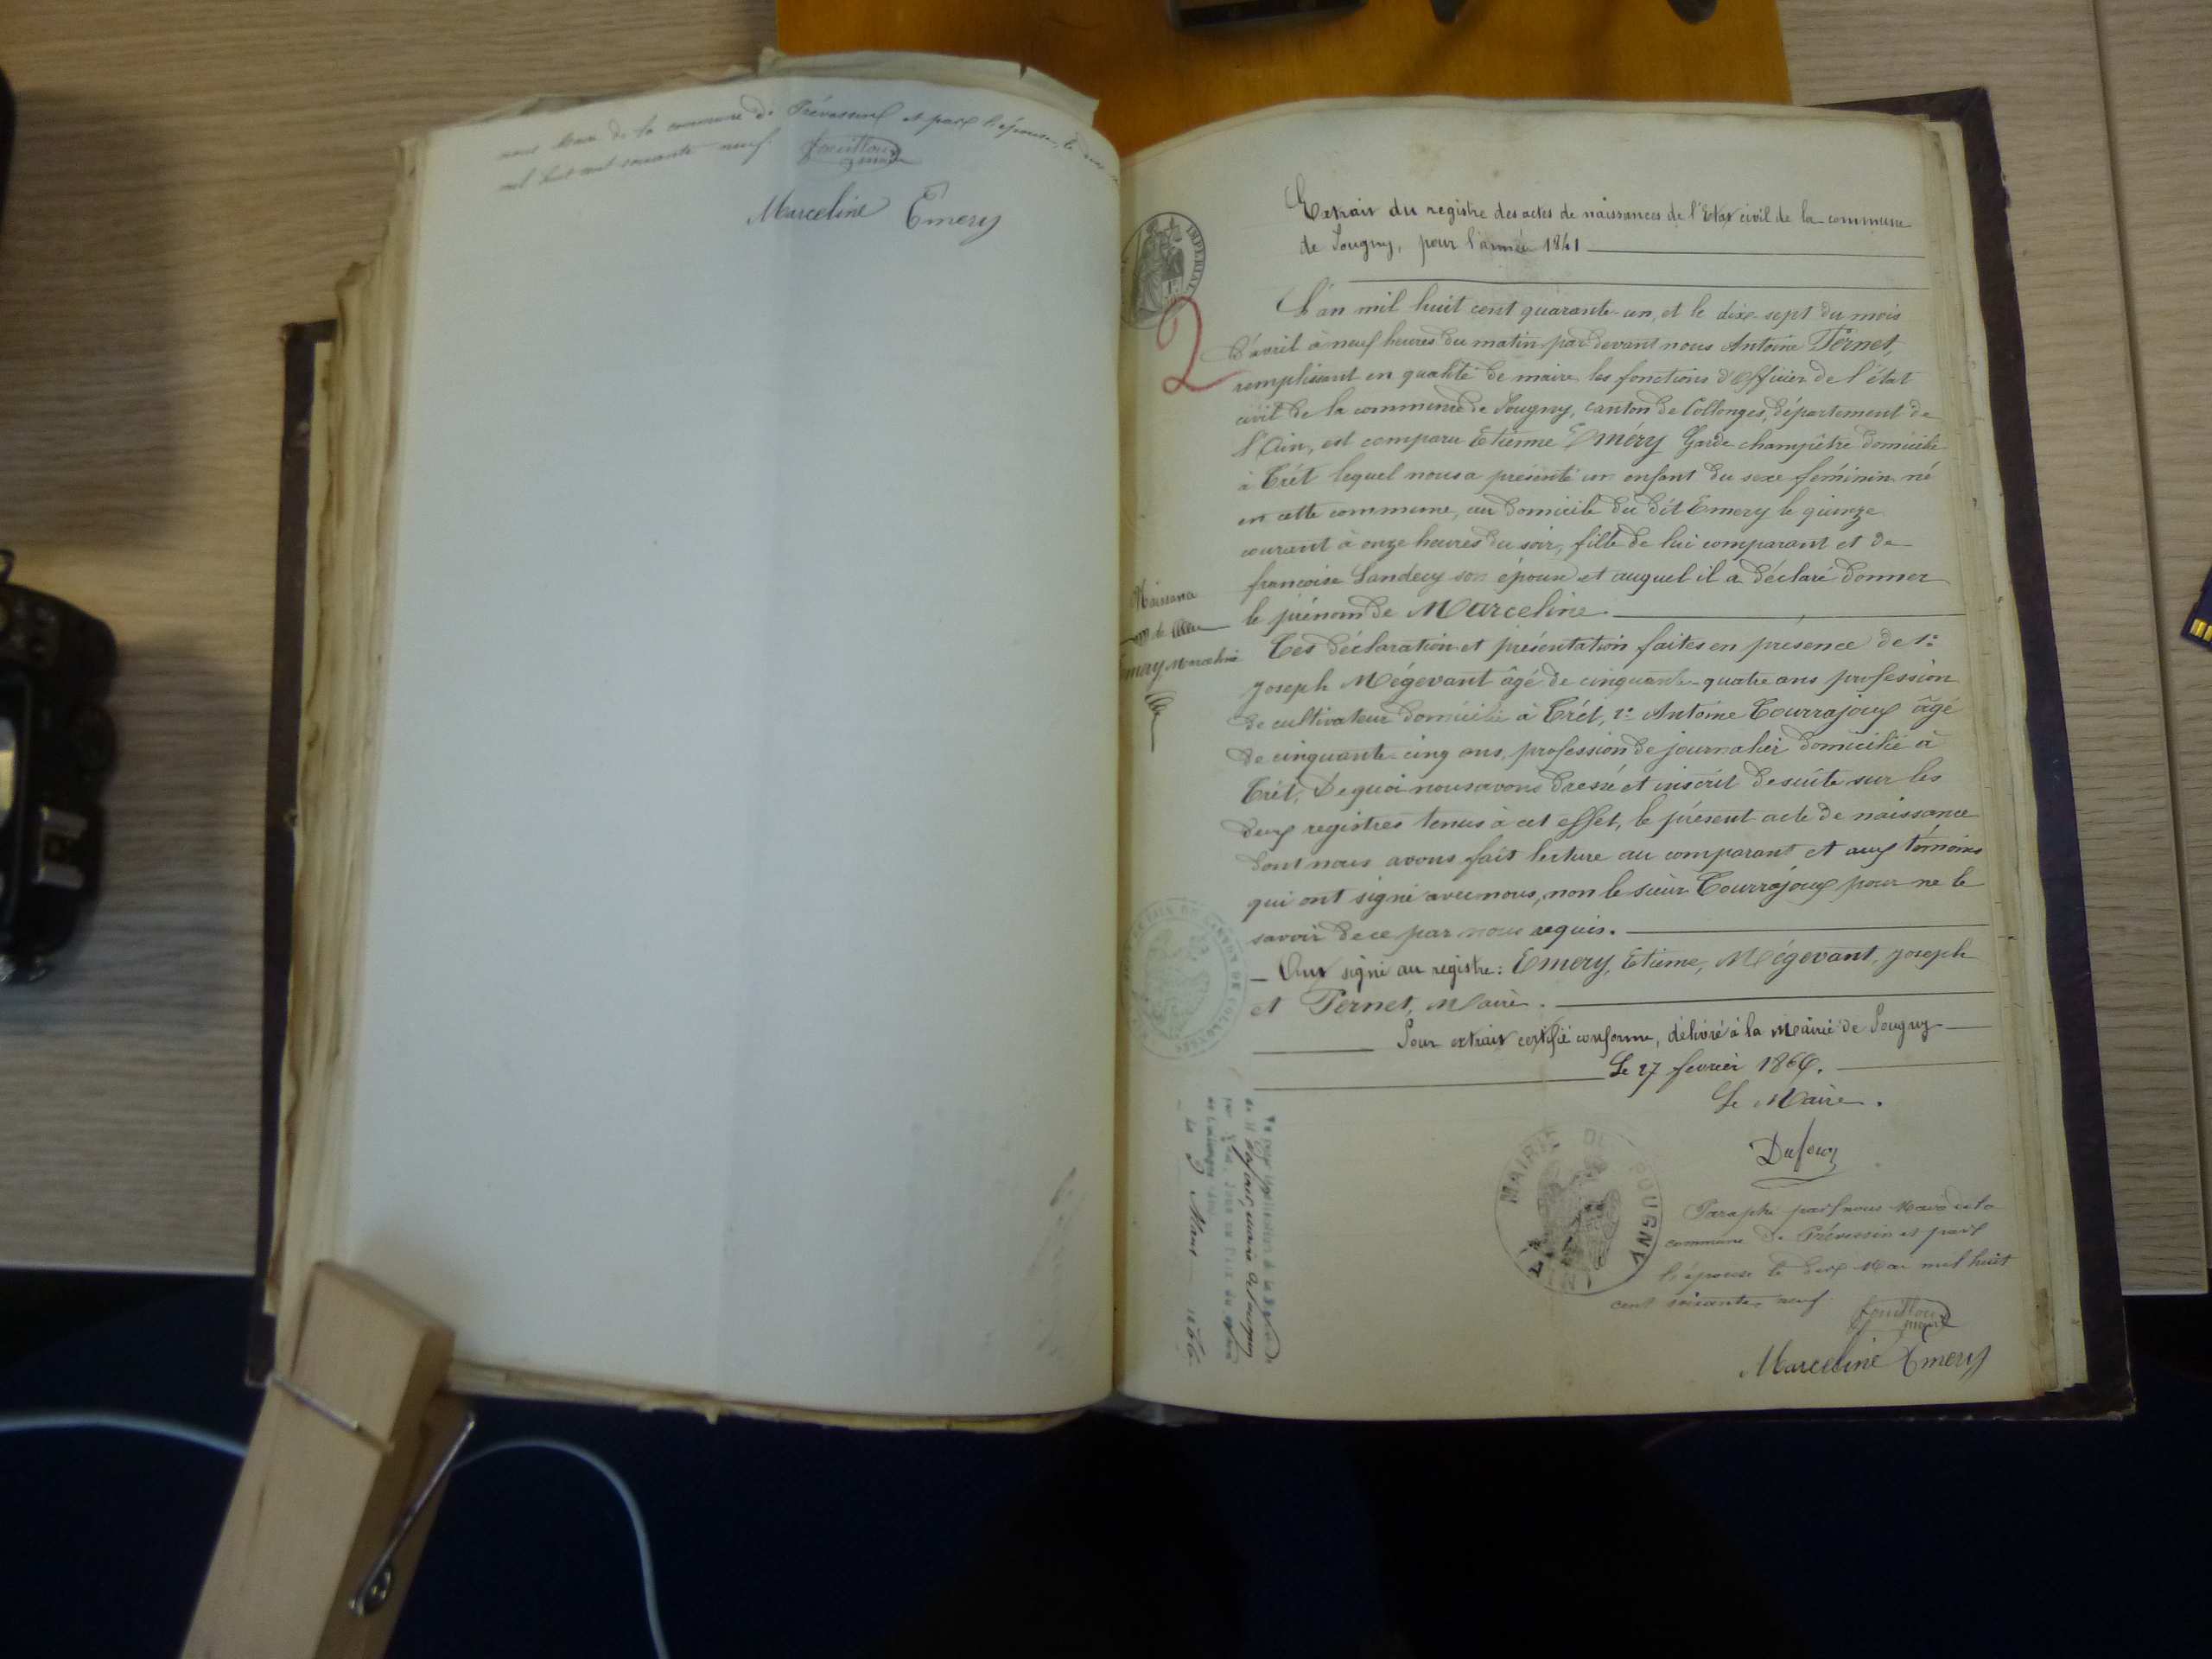 nous Maire de la commune de Prévessin et par l'épouse, le deux
mil huit cent soixante neuf. Fouilloux
maire
Marceline Emery
IMPERIAL
Extrait du registre des actes de naissances de l'Etat civil de la commune
de Pougny, pour l'année 1841
2
L'an mil huit cent quarante-un, et le dix-sept du mois
d'avril à neuf heures du matin par devant nous Antoine Pernet,
remplissant en qualité de maire les fonctions d'officier de l'état
civil de la commune de Pougny, canton de Collonges, département de
l'Ain, est comparu Etienne Eméry Garde champêtre domicilié
à Crét lequel nous a présenté un enfant du sexe féminin né
en cette commune, au domicile du dit Emery le quinze
courant à onze heures du soir, fille de lui comparant et de
françoise Landecy son épouse et auquel il a déclaré donner
le prénom de Marceline.
Naissance
de
Emery Marceline
Ces déclaration et présentation faites en présence de 1º
Joseph Mégevant âgé de cinquante-quatre ans profession
de cultivateur domicilié à Crét, 2º Antoine Courrajoux âgé
de cinquante-cinq ans, profession de journalier domicilié à
Crét. De quoi nous avons dressé et inscrit desuite sur les
deux registres tenus à cet effet, le présent acte de naissance
dont nous avons fait lecture au comparant et aux témoins
qui ont signé avec nous, non le sieur Courrajoux pour ne le
savoir de ce par nous requis.
Ont signé au registre: Emery, Etienne, Mégevant, Joseph
et Pernet, Maire.
Pour extrait certifié conforme, délivré à la Mairie de Pougny
Le 27 fevrier 1869.
Le Maire.
Dufour
MAIRIE DE POUGNY
Paraphé par nous Maire de la
commune de Prévessin et par
l'épouse le deux Mai mil huit
cent soixante neuf
Fouilloux
maire
Marceline Emery
CANTON DE COLLONGES
Vu pour législation de la Signature
de M Dufour, maire de Pougny
par Nous, Juge de Paix du canton
de Collonges (Ain)
Le 3 Mars 1869